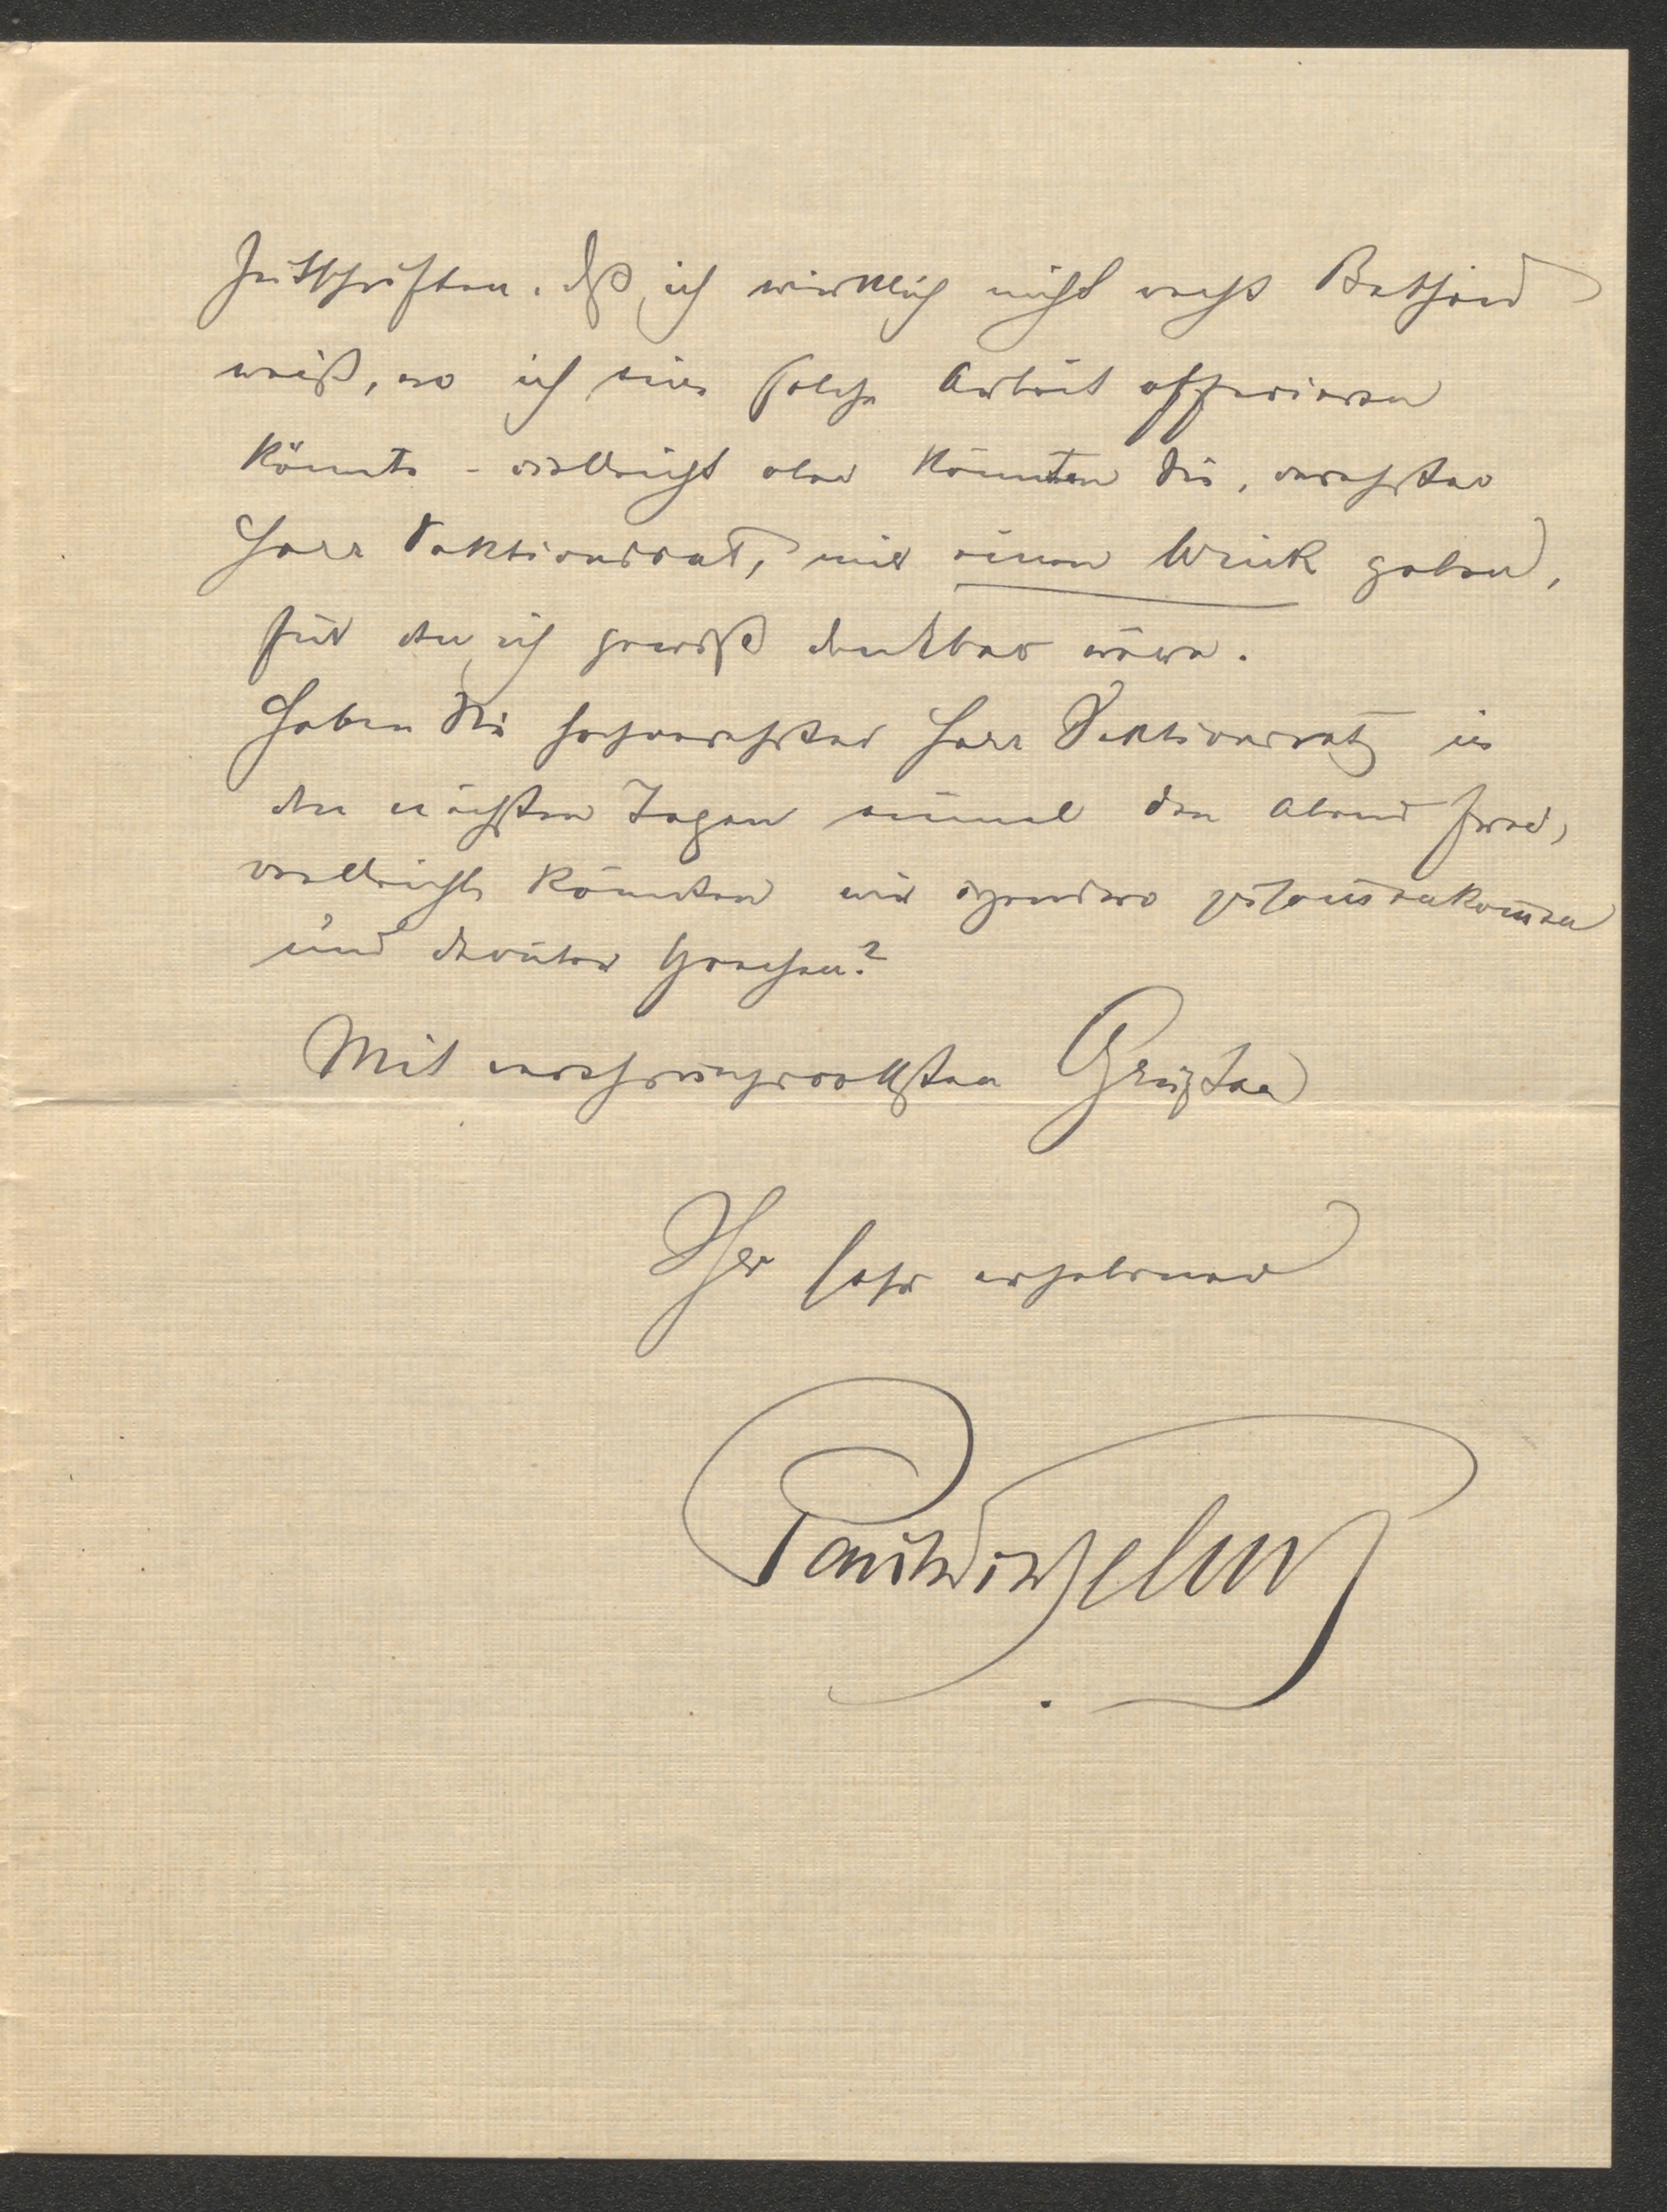 Zeitschriften. dß ich wirklich nicht recht Bescheid
weiß, wo ich eine solche Arbeit offerieren
könnte - vielleicht aber könnten Sie, verehrter
Herr Sektionsrat, mir einen Wink geben,
für den ich gewiß dankbar wäre.
Haben Sie hochverehrter Herr Sektionsrat in
den nächsten Tagen einmal den Abend frei,
vielleicht könnten wir irgendwo zusammenkommen
und darüber sprechen?
Mit verehrungsvollsten Grüßen
Ihr sehr ergebener
Paul Wertheimer